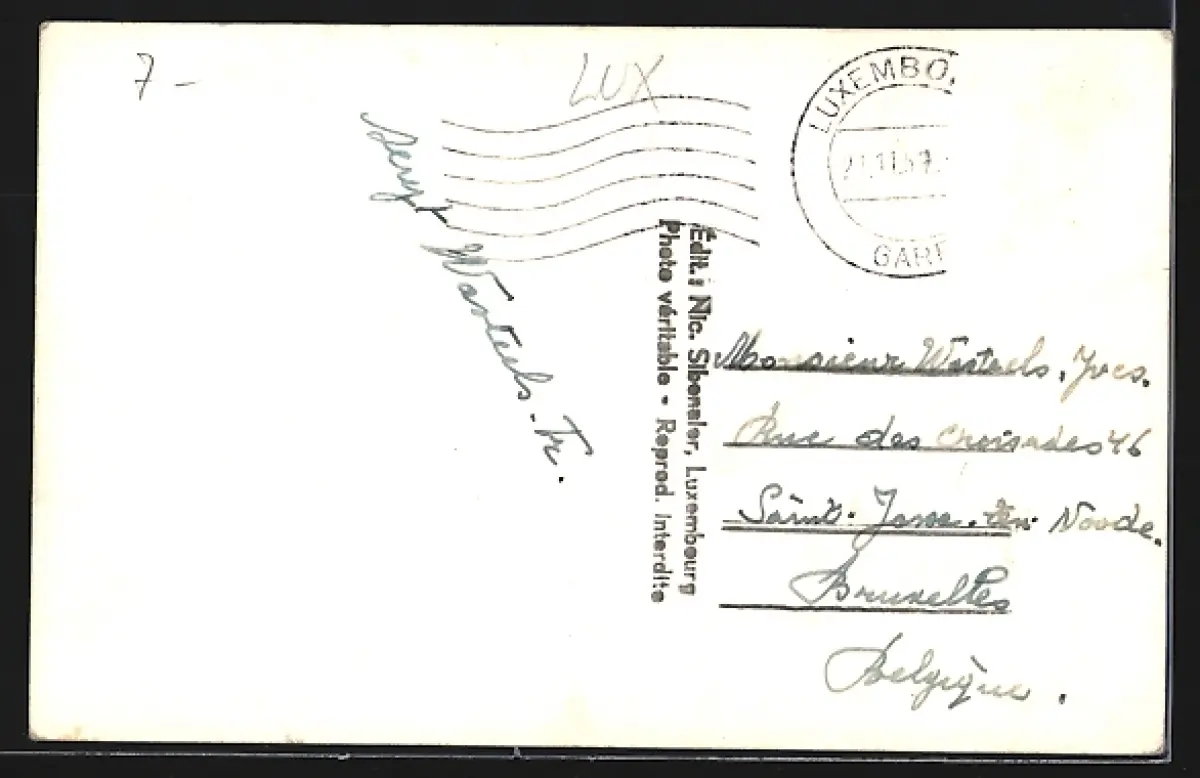 7 -
LUX
LUXEMBO
GARE
Wastiels. Fr.
Edit.: Nic. Sibenaler, Luxembourg
Photo véritable - Reprod. interdite
Monsieur Wastiels. Yves.
Rue des Croisades 46
Saint. Josse-ten-Noode.
Bruxelles
Belgique.